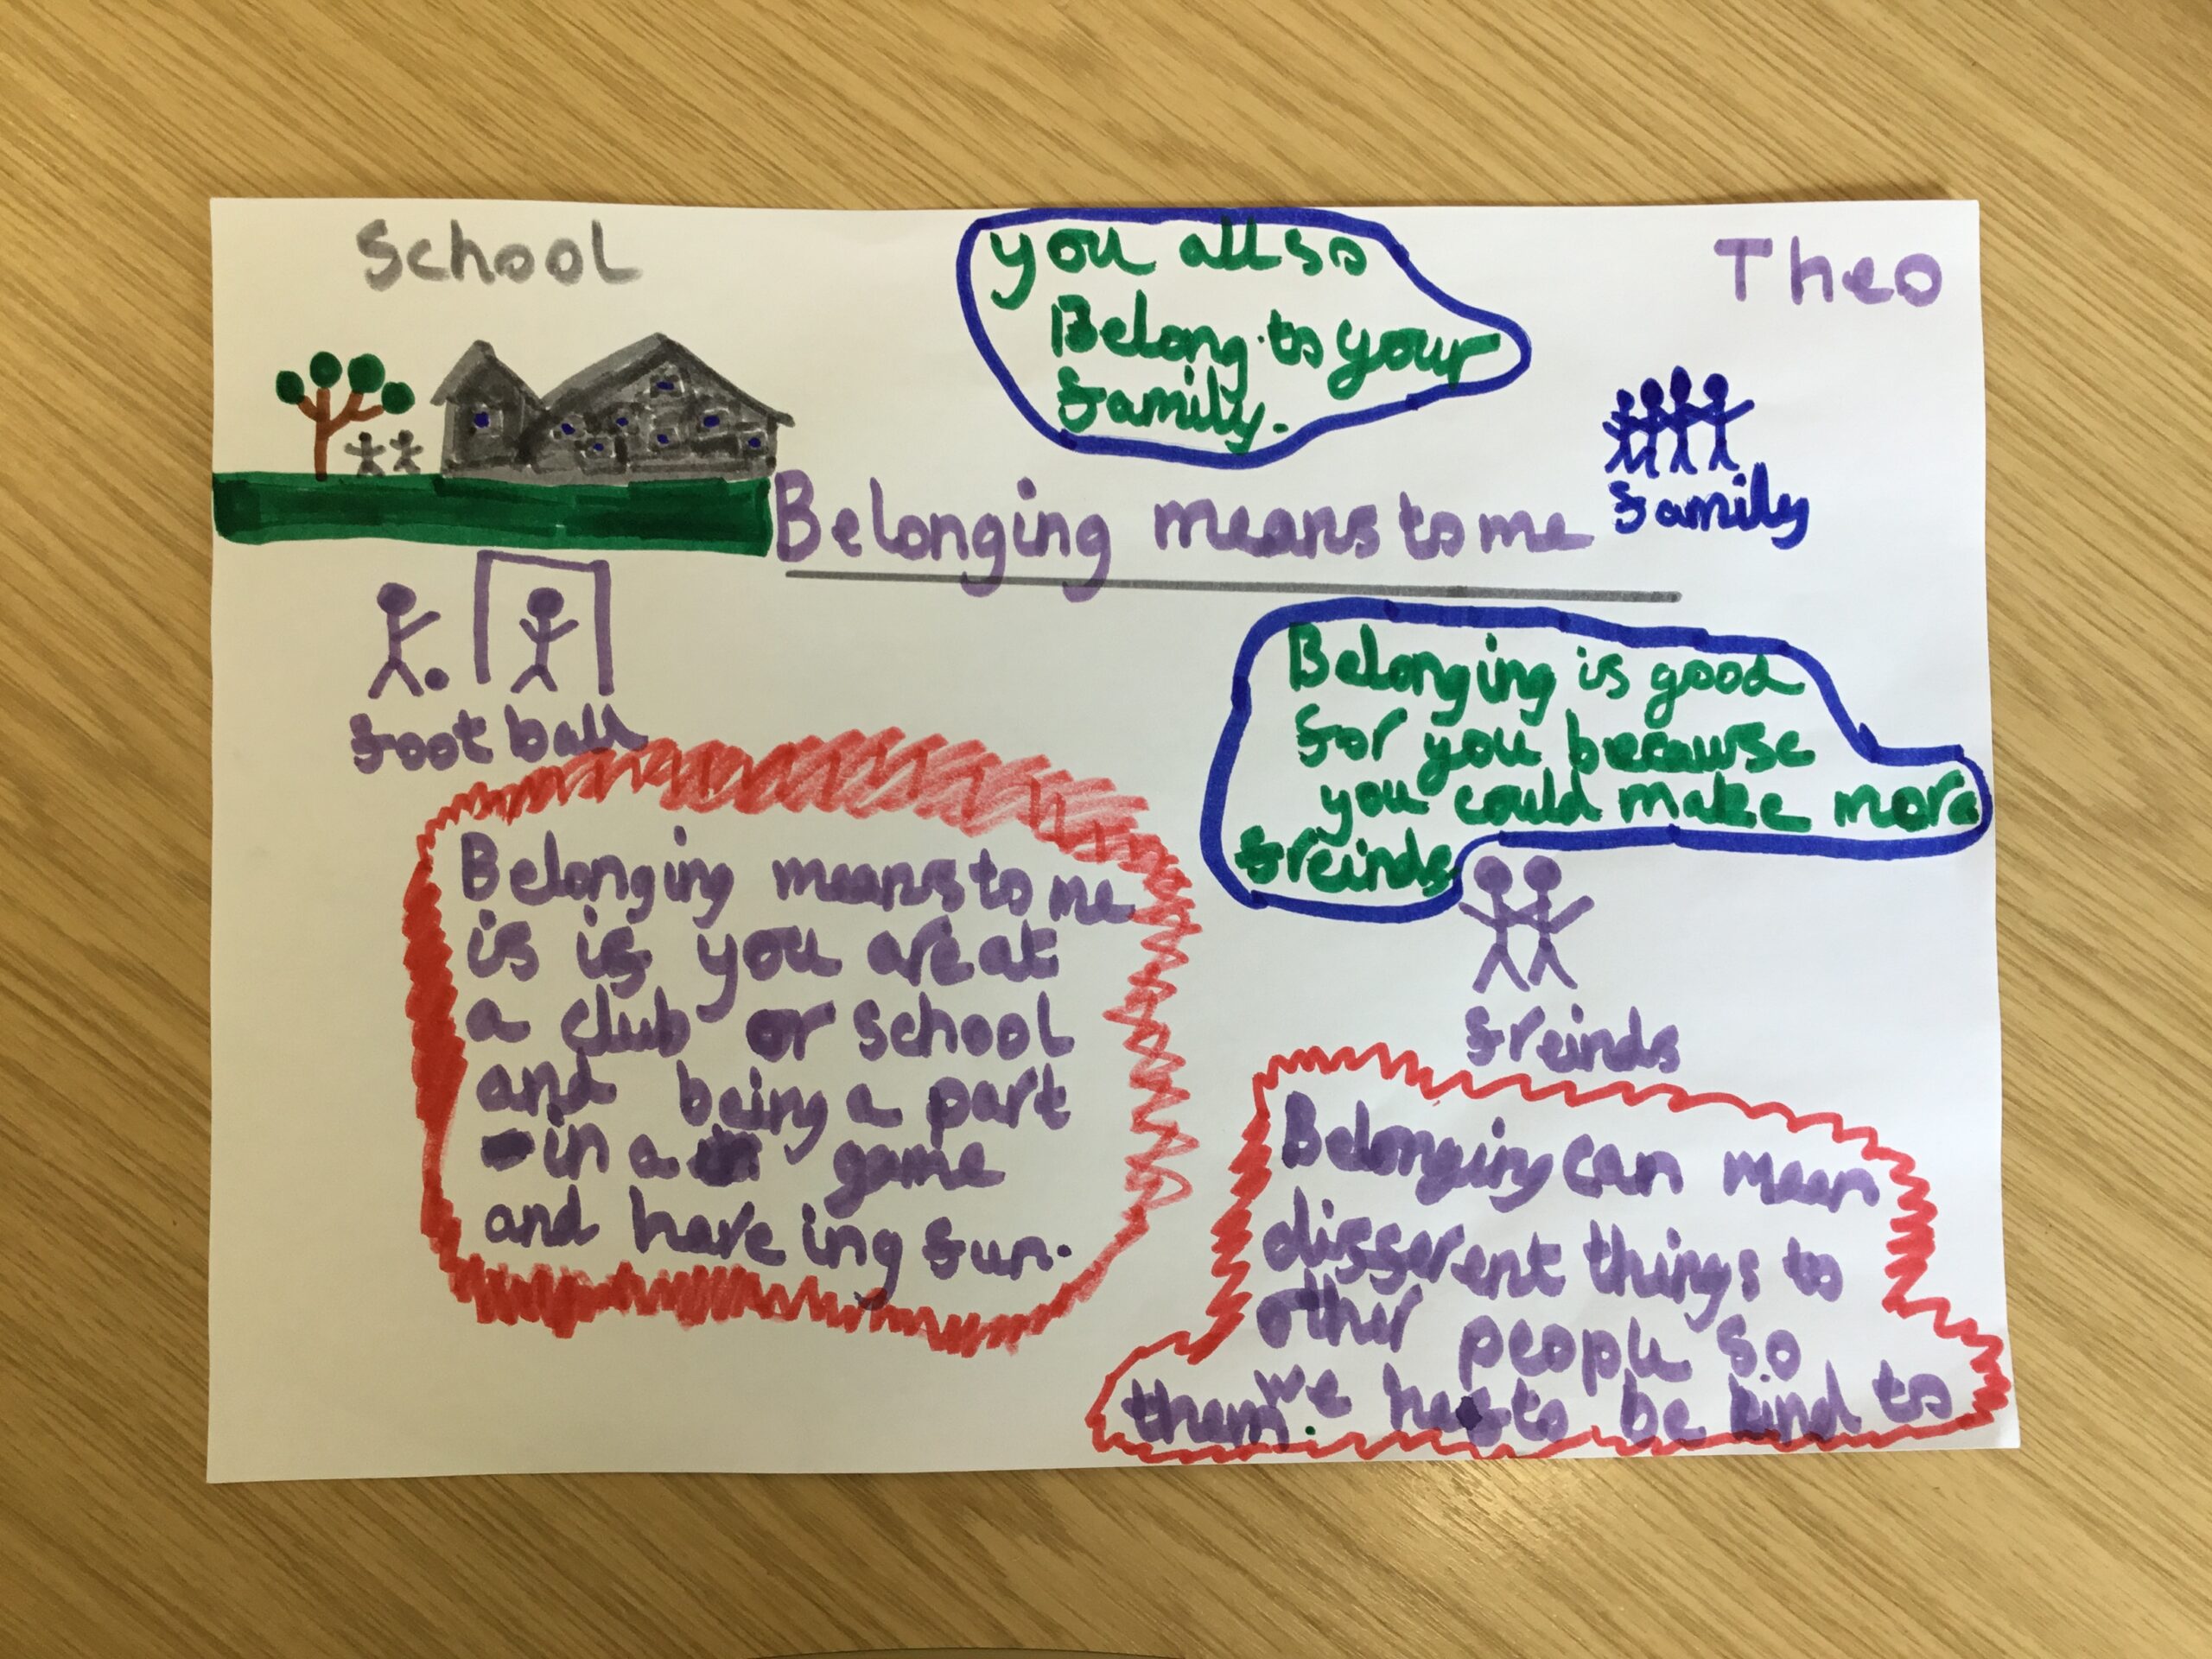 School
you allso
Belong to your
family.
Theo
family
Belonging means to me
foot ball
Belonging is good
for you because
you could make more
freinds
freinds
Belonging means to me
is is you are at
a club or school
and being a part
in a game
and have ing fun.
Belonging can mean
different things to
other people so
we has to be kind to
them.